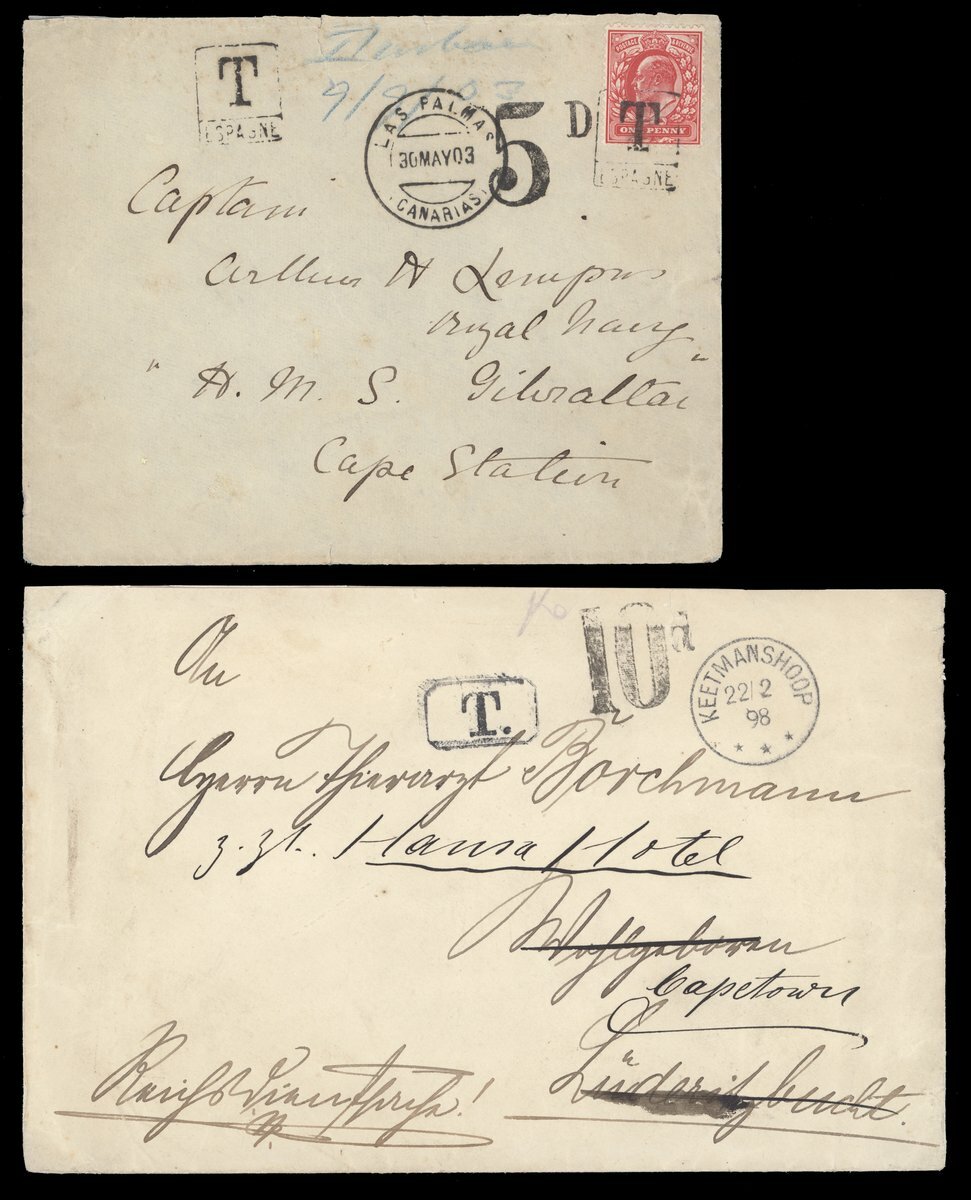 T
ESPAGNE
9/9/03
LAS PALMAS
30MAY03
(CANARIAS)
5D
POSTAGE & REVENUE
ONE PENNY
T
ESPAGNE
Captain
Arthur H Limpus
Royal Navy
"H. M. S. Gibraltar"
Cape Station
10d
T.
KEETMANSHOOP
22/2
98
An
Herrn Thierarzt Borchmann
z. Zt. Hansa Hotel
Wohlgeboren
Capetown
Lüderitzbucht.
Reichsdienstsache!